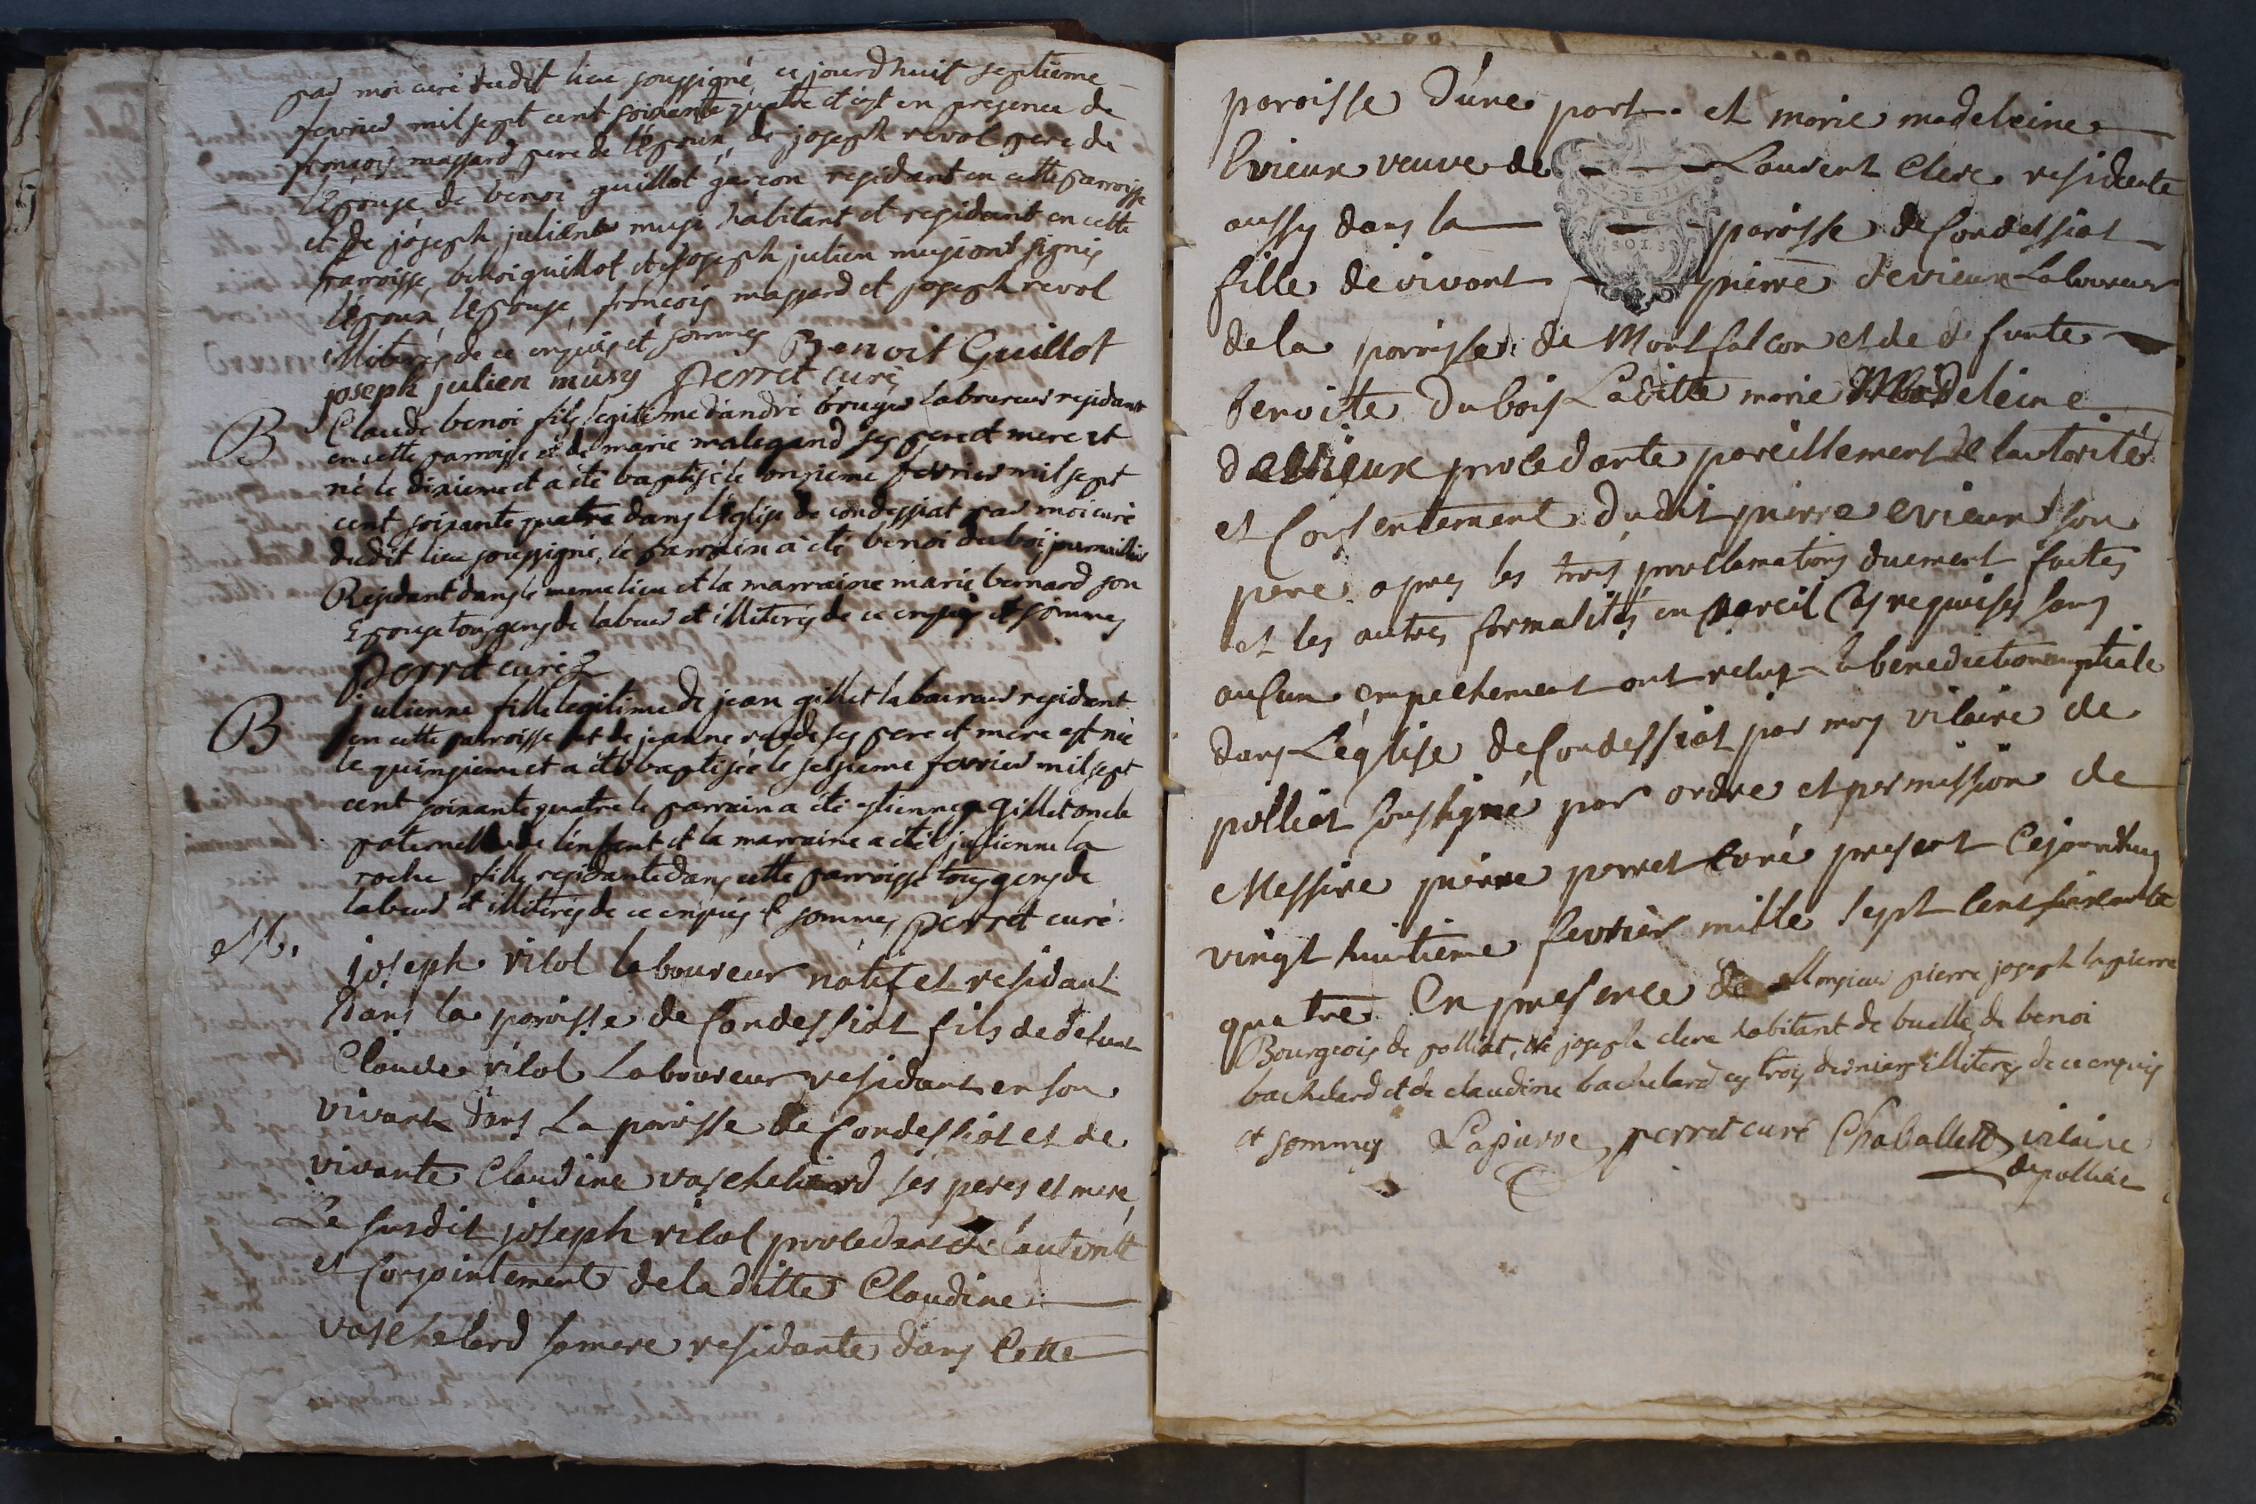 par moi curé dudit lieu soussigné ce jourdhuit septieme
fevrier mil sept cent soixante quatre et c'est en presence de
françois massard pere de l'époux, de joseph revol pere de
l'épouse de benoi guillot garçon residant en cette parroisse
et de joseph julient musi habitant et residant en cette
parroisse, benoi guillot et joseph julien musi ont signés
l'époux, l'épouse, françois massard et joseph revol
illiterés de ce enquis et sommés Benoit Guillot
joseph julien musy perret curé
B Claude benoi fils legitime d'andré brouger laboureur residant
en cette parroisse et de marie malegand ses pere et mere est
né le dixieme et a été baptisé le onzieme fevrier mil sept
cent soixante quatre dans l'église de condessiat par moi curé
dudit lieu soussigné, le parrain a été benoi du boi journaillier
Residant dans le meme lieu et la marraine marie bernard son
Epouse tous gens de labeur et illiterés de ce enquis et sommés
perret curé
B julienne fille legitime de jean gillet laboureur residant
en cette parroisse et de jeanne ses pere et mere est née
le quinzieme et a été baptisée le seizieme fevrier mil sept
cent soixante quatre le parrain a été estienne gillet oncle
paternel de l'enfant et la marraine a été julienne la
roche fille residante dans cette parroisse tous gens de
labeur et illiterés de ce enquis et sommés perret curé
M. joseph vilol laboureur natif et residant
dans la paroisse de Condessiat fils de defunt
Claude vilol Laboureur residant en son
vivant dans La paroisse de Condessiat et de
vivante Claudine vaschelard ses peres et mere,
Le susdit joseph vilol procedant de l'autorité
et Conjointement de la ditte Claudine
vaschelard sa mere residante dans Cette
paroisse d'une part. et marie madeleine
Evieux veuve de Laurent Clerc residente
aussy dans la paroisse de Condessiat
fille de vivant pierre devieux Laboureur
de la paroisse de Montfalcon et de defunte
benoite Dubois Laditte marie Madeleine
devieux procedante pareillement de l'autorité
et Consentement dudit pierre evieux son
pere apres les trois proclamations duement faites
et les autres formalités en pareil Cas requises sans
aucun empechement ont reçus la benediction nuptiale
dans L'église de Condessiat par moy vicaire de
polliat soussigné par ordre et permission de
Messire pierre perret Curé present Cejourdhuy
vingt huitieme fevrier mille sept Cent soixante
quatre En presence de Monsieur pierre joseph lapierre
Bourgeois de polliat, de joseph clerc habitant de buelle, de benoi
bachelard et de claudine bachelard ces trois derniers Illiterés de ce enquis
et sommés Lapierre perret curé Chaballett vicaire
de polliat